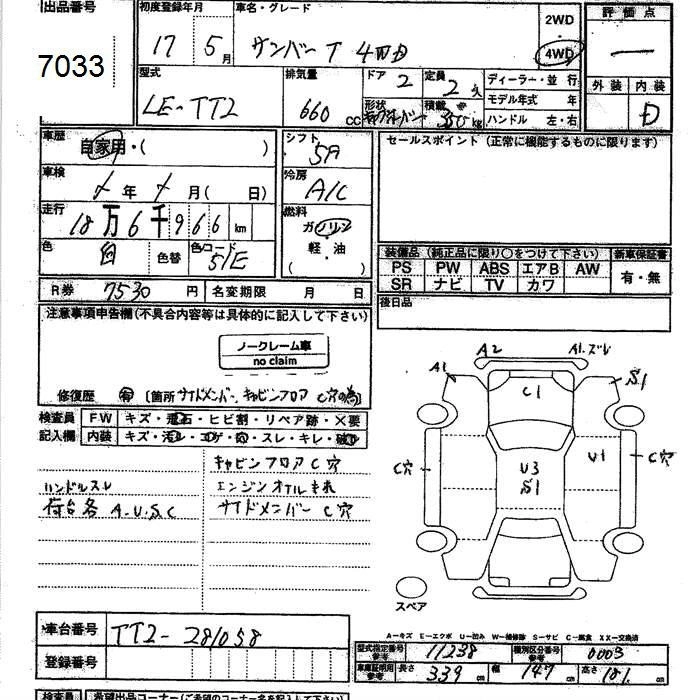 出品番号
7033
初度登録年月
17 5月
車名・グレード
サンバーT 4WD
2WD
4WD
評価点
―
外装 内装
D
型式
LE-TT2
排気量
660 CC
ドア 2
定員 2人
形状
積載 350kg
ディーラー・並行
モデル年式 年
ハンドル 左・右
車歴
自家用・( )
車検
年 月( 日)
走行
18万6千966km
色
白
色替
色/コード
51E
シフト
5A
冷房
A/C
燃料
ガソリン
軽・油
( )
セールスポイント (正常に機能するものに限ります)
装備品 (純正品に限り○をつけて下さい)
新車保証書
PS PW ABS エアB AW
SR ナビ TV カワ
有・無
後日品
R券 7530円
名変期限 月 日
注意事項申告欄(不具合内容等は具体的に記入して下さい)
ノークレーム車
no claim
修復歴 有 〔箇所 サイドメンバー、キャビンフロア C穴の為〕
検査員
記入欄
FW キズ・飛石・ヒビ割・リペア跡・×要
内装 キズ・汚レ・コゲ・穴・スレ・キレ・破レ
キャビンフロアC穴
ハンドルスレ
エンジンオイルもれ
荷台各 A.U.S.C
サイドメンバー C穴
A1
A2
A1.ズレ
S1
C1
C穴
U3
S1
U1
C穴
スペア
車台番号
TT2-281058
登録番号
A-キズ E-エクボ U-凹み W-補修跡 S-サビ C-腐食 XX-交換済
型式指定番号
参考
11238
種別区分番号
参考
0003
車庫証明用
参考
長さ 339cm
幅 147cm
高さ 181cm
検査員
希望出品コーナー(ご希望のコーナー名を記入下さい)